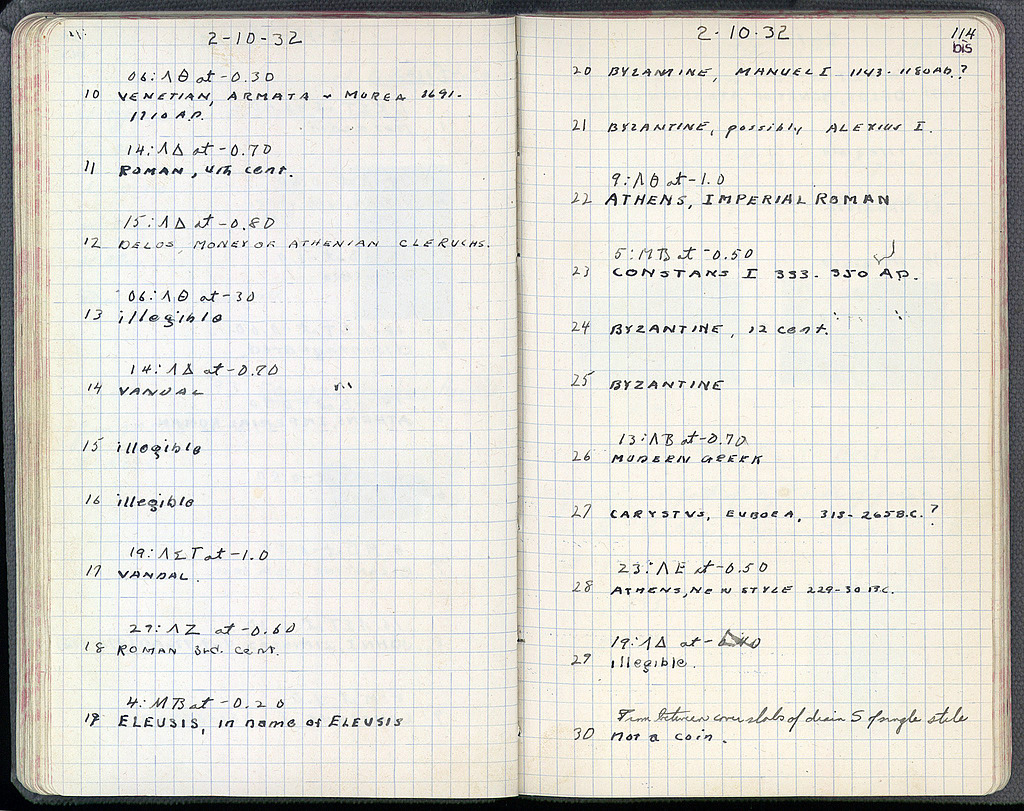 2-10-32
06:ΛΘ at -0.30
10 VENETIAN, ARMATA ~ MOREA 1691-
1710 A.D.
14:ΛΔ at -0.70
11 ROMAN, 4th cent.
15:ΛΔ at -0.80
12 DELOS, MONEY OF ATHENIAN CLERUCHS.
06:ΛΘ at -30
13 illegible
14:ΛΔ at -0.70
14 VANDAL
15 illegible
16 illegible
19:ΛΣΤ at -1.0
17 VANDAL.
27:ΛΖ at -0.60
18 ROMAN 3rd. cent.
4:ΜΒ at -0.20
19 ELEUSIS, in name of ELEUSIS
2-10-32
114
bis
20 BYZANTINE, MANUEL I 1143-1180 AD.?
21 BYZANTINE, possibly ALEXIUS I.
9:ΛΘ at -1.0
22 ATHENS, IMPERIAL ROMAN
5:ΜΒ at -0.50
23 CONSTANS I 333-350 A.D.
24 BYZANTINE, 12 cent.
25 BYZANTINE
13:ΛΒ at -0.70
26 MODERN GREEK
27 CARYSTVS, EUBOEA, 313-265 B.C.?
23:ΛΕ at -0.50
28 ATHENS, NEW STYLE 229-30 B.C.
19:ΛΔ at -0.40
29 illegible.
From between cover slabs of drain S of single stele
30 not a coin.